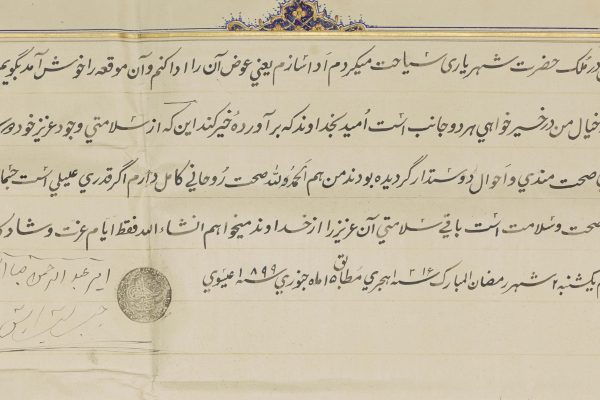 در ملک حضرت شهریاری سیاحت میکردم ادا سازم یعنی عوض آن را ادا کنم و آن موقعه را خوش آمد بگویم
خیال من در خیر خواهي هر دو جانب است اُمید بخداوند که برآورده خیر کند این که از سلامتي وجود عزیز خود
صحت مندي و احوال دوستدار گردیده بودند من هم الحمدولله صحت رُوحاني کامل دارم اگر قدري علیلي است
صحت و سلامت است باقي سلامتي آن عزیز را از خداوند میخواهم انشاءالله فقط ایام عزت و شاد
یکشنبه ۲ شهر رمضان المبارک سنه ۱۳۱۶ هجري مطابق ۱۵ ماه جنوري سنه ۱۸۹۹ عیسوي
امیر عبدالرحمن